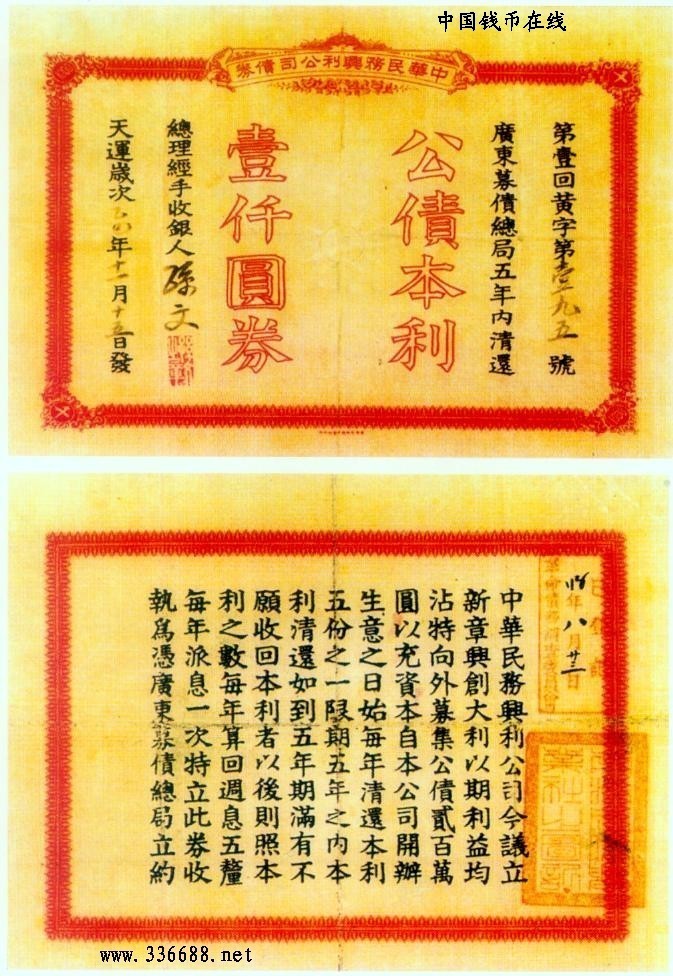 中国钱币在线
中華民務興利公司債券
第壹回黃字第壹九五號
廣東募債總局五年内清還
公債本利
壹仟圓券
總理經手收銀人孫文
天運歲次乙巳年十一月十五日發
年八月廿三日
中華民務興利公司今議立
新章興創大利以期利益均
沾特向外募集公債貳百萬
圓以充資本自本公司開辦
生意之日始每年清還本利
五份之一限期五年之内本
利清還如到五年期滿有不
願收回本利者以後則照本
利之數每年算回週息五釐
每年派息一次特立此券收
執爲憑廣東募債總局立約
www.336688.net